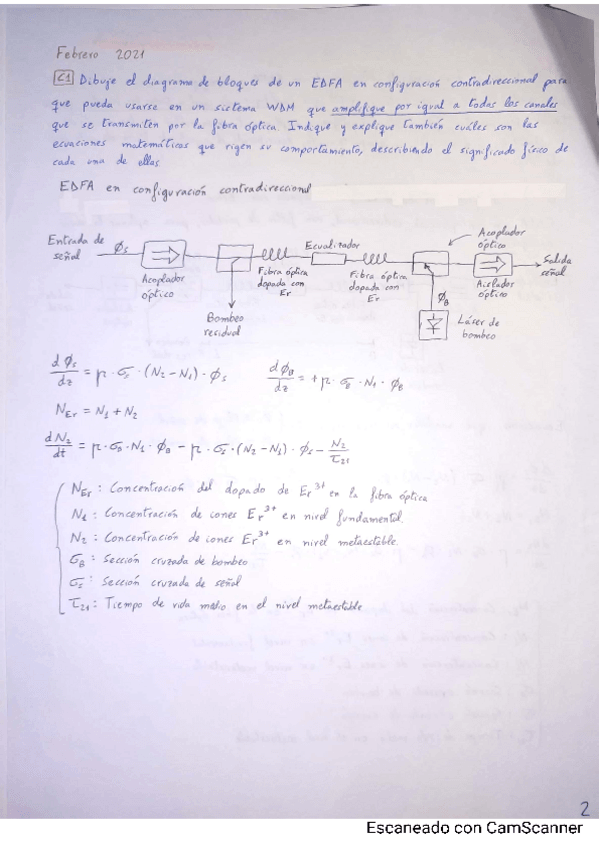 Febrero 2021
C1 Dibuje el diagrama de bloques de un EDFA en configuración contradireccional para
que pueda usarse en un sistema WDM que amplifique por igual a todas los canales
que se transmiten por la fibra óptica. Indique y explique también cuáles son las
ecuaciones matemáticas que rigen su comportamiento, describiendo el significado físico de
cada una de ellas
EDFA en configuración contradireccional
Entrada de señal
ϕs
Acoplador óptico
Bombeo residual
Fibra óptica dopada con Er
Ecualizador
Fibra óptica dopada con Er
Acoplador óptico
ϕB
Láser de bombeo
Aislador óptico
Salida señal
dϕs/dz = μ · σs · (N2 - N1) · ϕs
dϕB/dz = + μ · σB · N1 · ϕB
NEr = N1 + N2
dN2/dt = μ · σB · N1 · ϕB - μ · σs · (N2 - N1) · ϕs - N2/τ21
NEr : Concentración del dopado de Er³⁺ en la fibra óptica
N1 : Concentración de iones Er³⁺ en nivel fundamental.
N2 : Concentración de iones Er³⁺ en nivel metaestable
σB : Sección cruzada de bombeo
σs : Sección cruzada de señal
τ21 : Tiempo de vida medio en el nivel metaestable
2
Escaneado con CamScanner